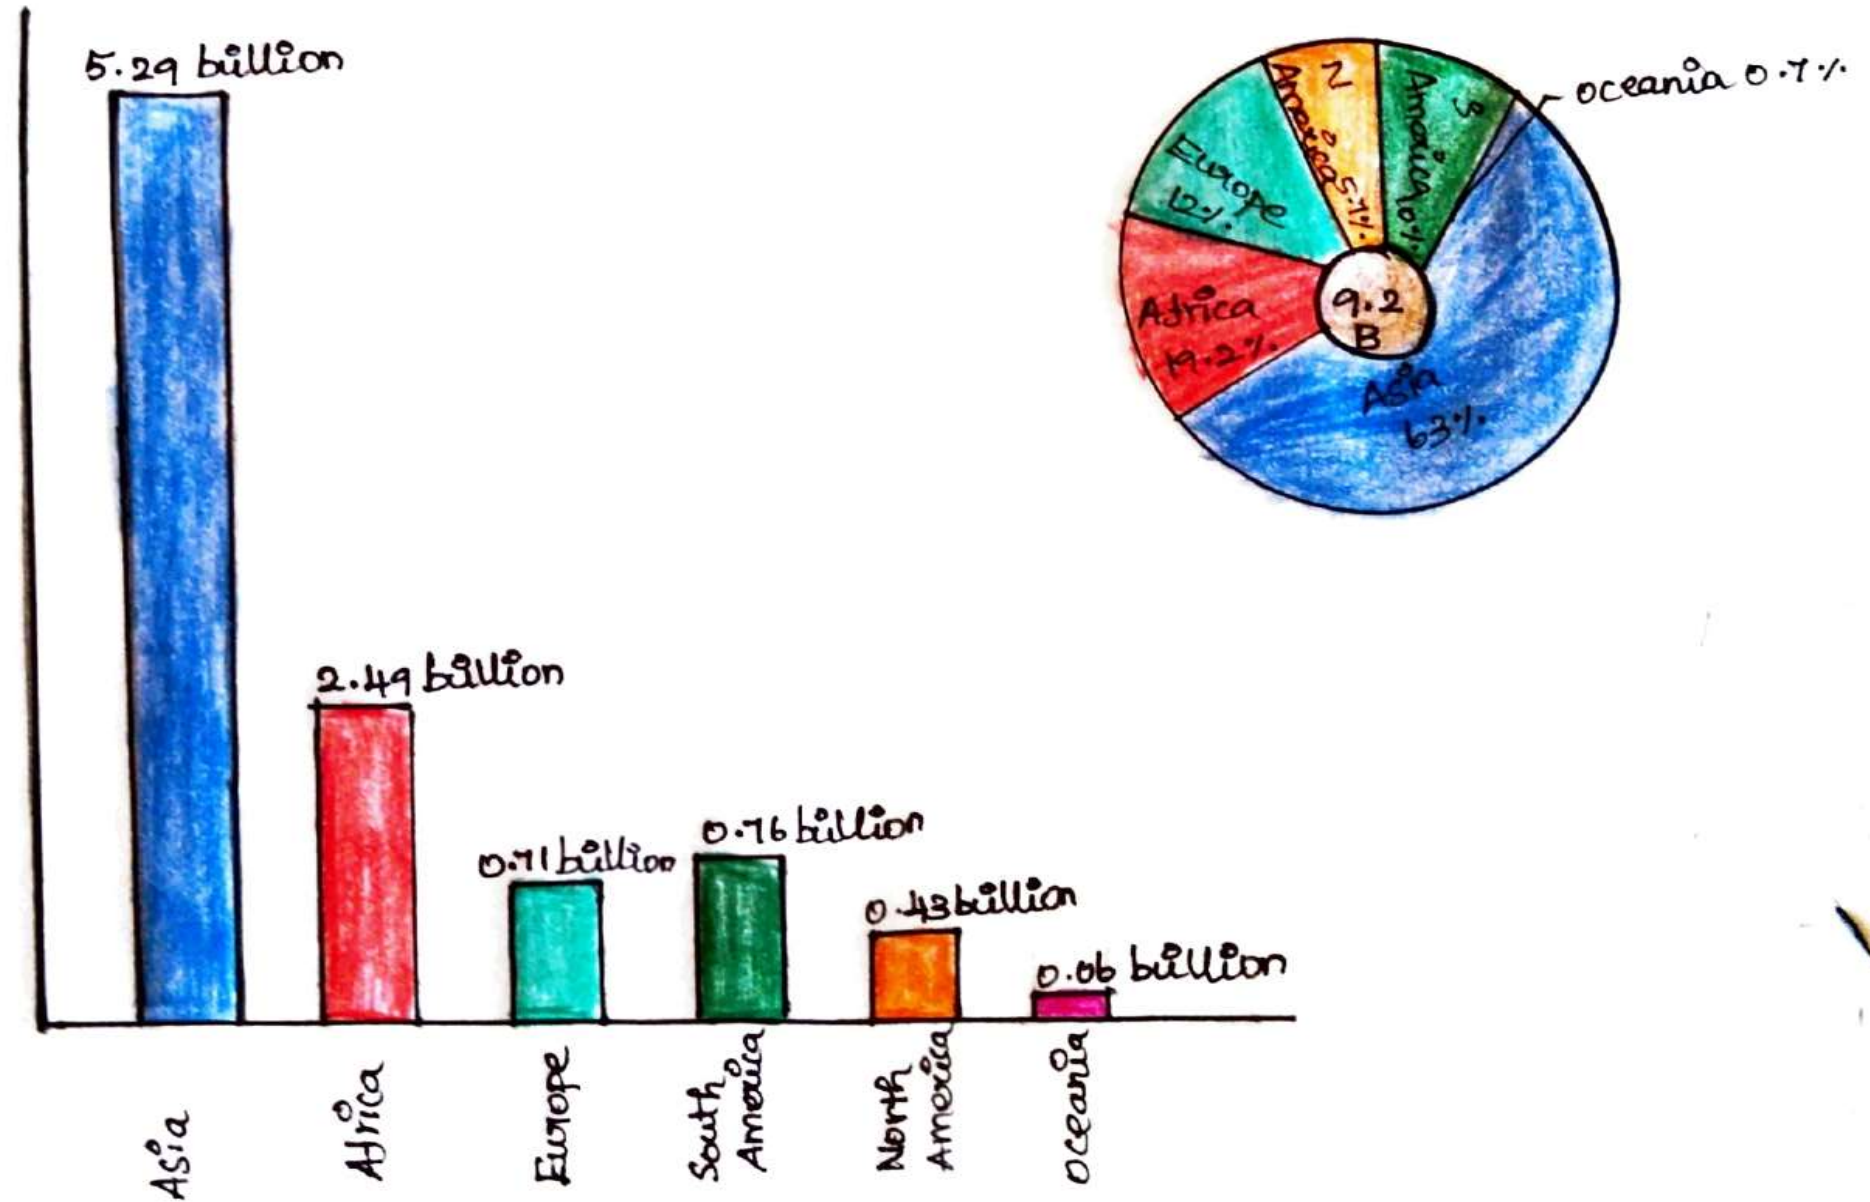 5.29 billion
2.49 billion
0.71 billion
0.76 billion
0.43 billion
0.06 billion
Asia
Africa
Europe
South
America
North
America
Oceania
Oceania 0.7%
N
America 5.7%
S
America
Europe
12%
Africa
19.2%
9.2
B
Asia
63%